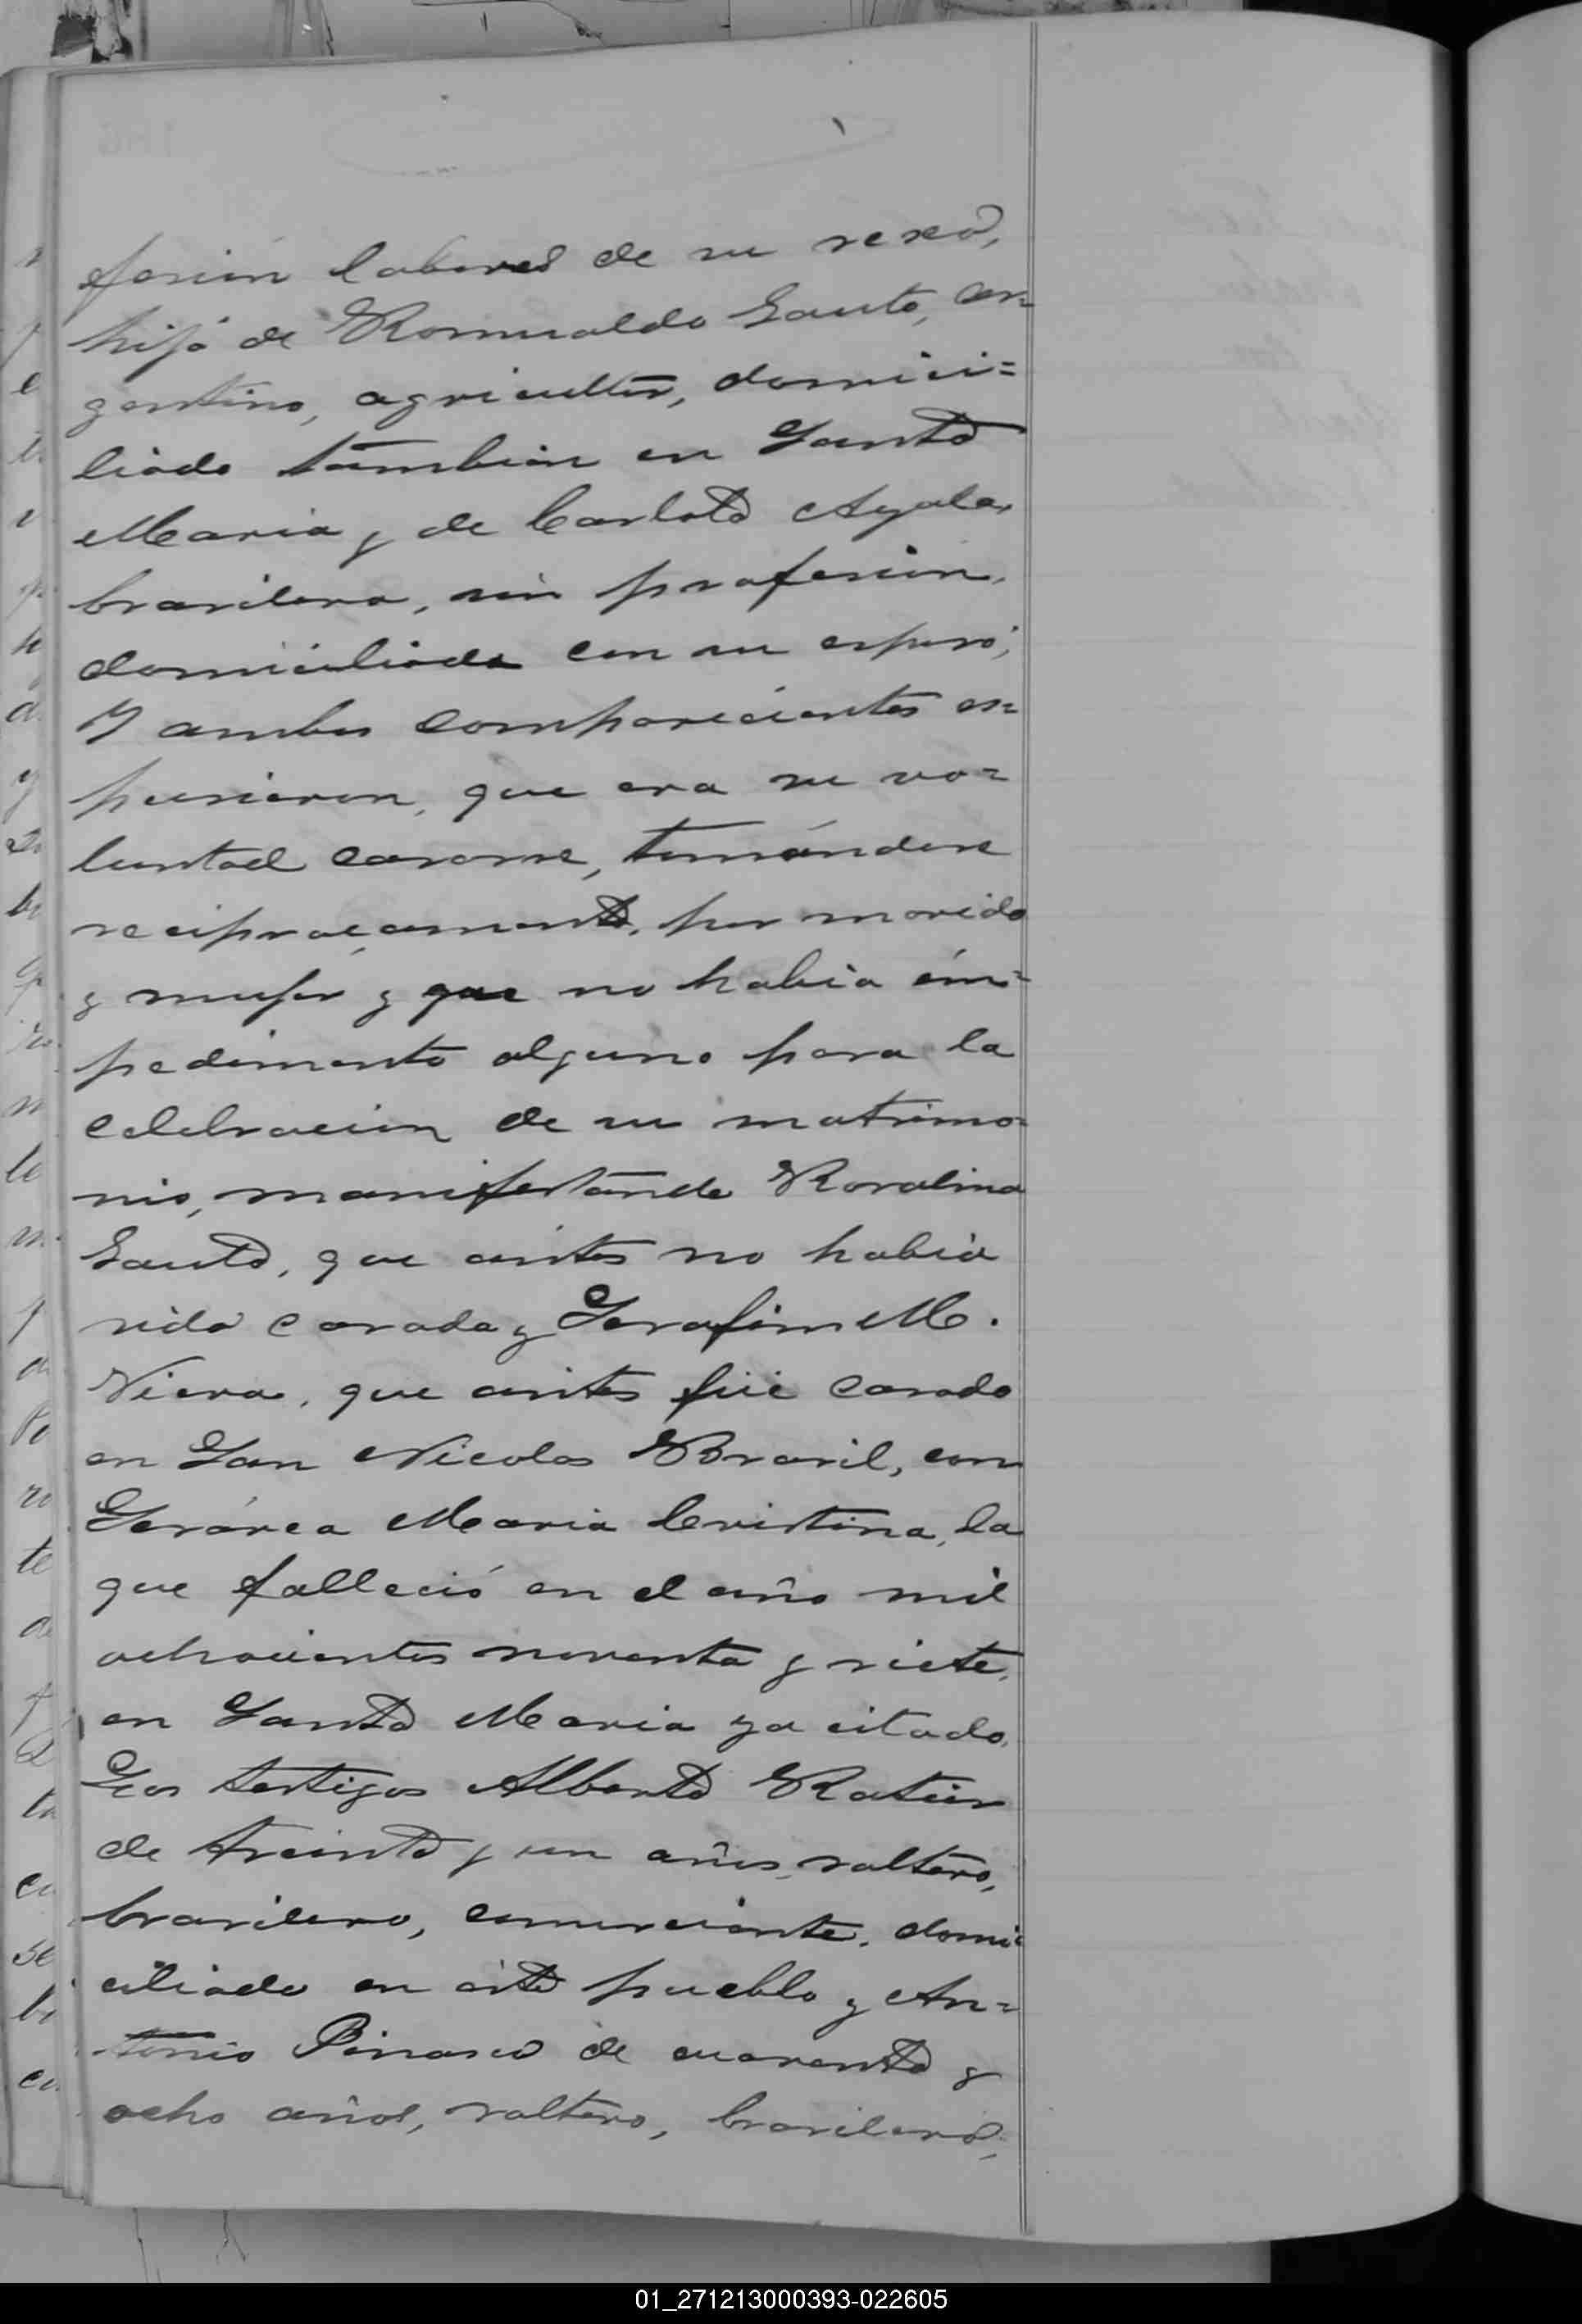 fesion labores de su sexo,
hija de Romualdo Sauto, ar-
gentino, agricultor, domici=
liado tambien en Santa
Maria y de Carlota Ayala,
brasilera, sin profesion,
domiciliada con su esposo;
Y ambos comparecientes es=
pusieron, que era su vo=
luntad casarse, tomándose
reciprocamente, por marido
y mujer y que no habia im=
pedimento alguno para la
celebracion de su matrimo=
nio, manifestando Rosalina
Sauto, que antes no habia
sido casada y Serafin M.
Viera, que antes fué casado
en San Nicolas Brasil, con
María Cristina, la
que falleció en el año mil
ochocientos noventa y siete,
en Santa Maria ya citado.
Los testigos Alberto
de treinta y un años, soltero,
brasilero, comerciante, domi
ciliado en este pueblo y An=
tonio Pinasco de cuarenta y
ocho años, soltero, brasilero,
01_271213000393-022605